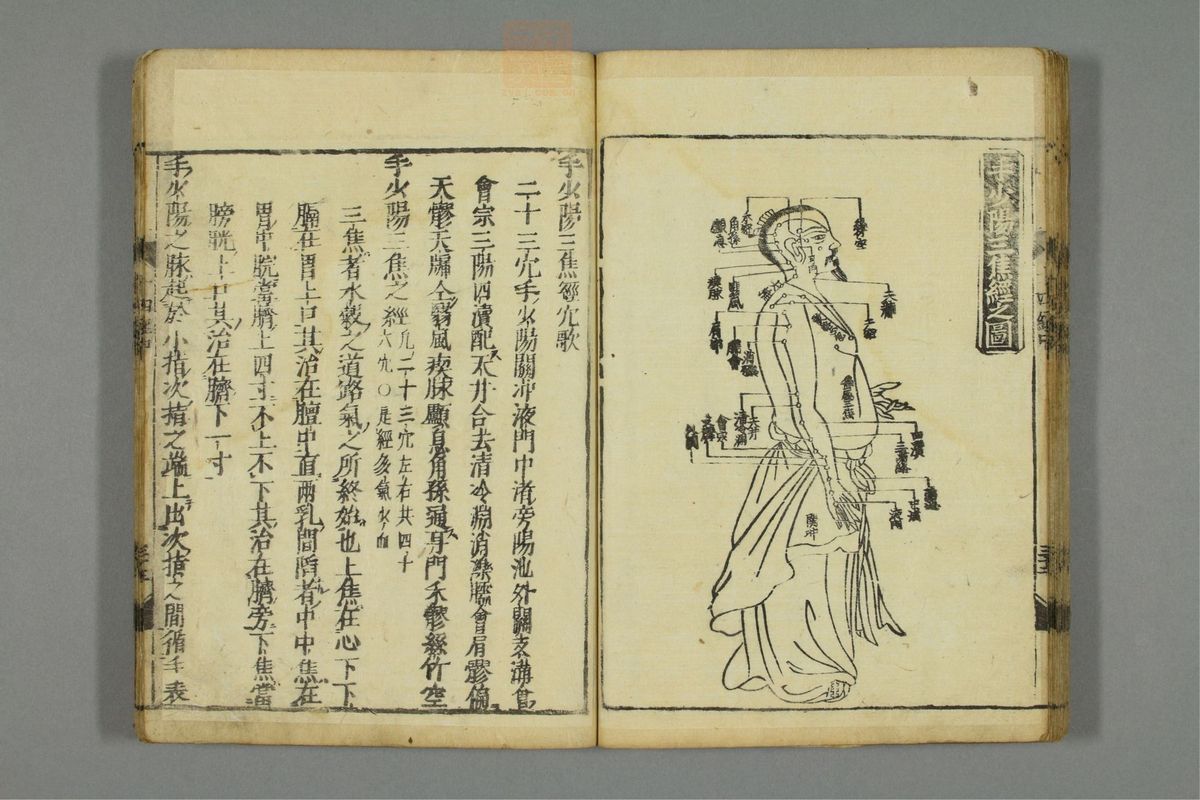 手少陽三焦經之圖
絲竹空
禾髎
角孫
顱息
瘈脉
翳風
天牖
天髎
肩髎
臑會
消濼
清冷淵
天井
四瀆
三陽絡
會宗
支溝
外關
陽池
中渚
液門
關冲
手少陽三焦經穴歌
二十三穴手少陽關冲液門中渚旁陽池外關支溝會
會宗三陽四瀆配天井合去清冷淵消濼臑會肩髎偏
天髎天牖仝翳風瘈脉顱息角孫通耳門禾髎絲竹空
手少陽三焦之經凡二十三穴左右共四十
六穴○是經多氣少血
三焦者水穀之道路氣之所終始也上焦在心下下
膈在胃上口其治在膻中直兩乳間陷者中中焦在
胃中脘當臍上四寸不上不下其治在臍旁下焦當
膀胱上口其治在臍下一寸
手少陽之脉起於小指次指之端上出次指之間循手表